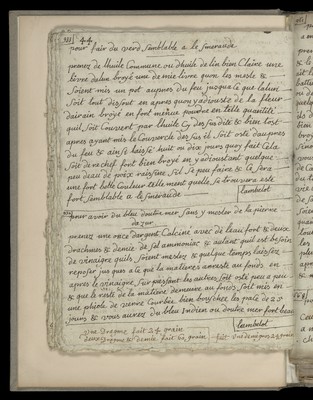 44
pour fair du verd semblable a le smeraude
prenez de lhuile Commune ou dhuile de lin bien Claire une
livre dalun broyé une demie livre que les mesle &
soient mis un pot aupres du feu jusqua ce que lalun
soit tout dissout en apres quoy y adiouste de la fleur
dairain broyé en fort menue poudre en telle quantité
quil soit Couvert par lhuile Cy dessus dite & bien
apres ayant mis le Couvercle dessus il soit osté daupres
du feu & ainsi laissé huit ou dix jours quoy fait Cela
soit derechef fort bien broyé en y adioustant quelque
peu deau de poix raisine sil se peu faire & le sera
une fort belle Couleur tellement quelle se trouvera este
fort semblable a le smeraude
lambelot
pour avoir du bleu doutre mer sans y mesler de la pierre
dazur
prenez une once dargent Calciné avec de leau fort & deux
drachmes & demie de sal ammoniac & autant quil est besoin
de vinaigre quils soient mesles & quelque temps laissés
reposer jusques a ce que la matiere sarreste au fonds en
apres le vinaigre surpassant les autres soit osté peu a peu
& que le reste de la matiere demeuré au fonds soit mis en
une phiole de verre Courbée bien bouchee les pale de 22
jours & vous aurez du bleu Indien ou doutre mer fort beau
lambelot
Une Dragme fait 24 grain
deux Dragme & demie fait 60 grain